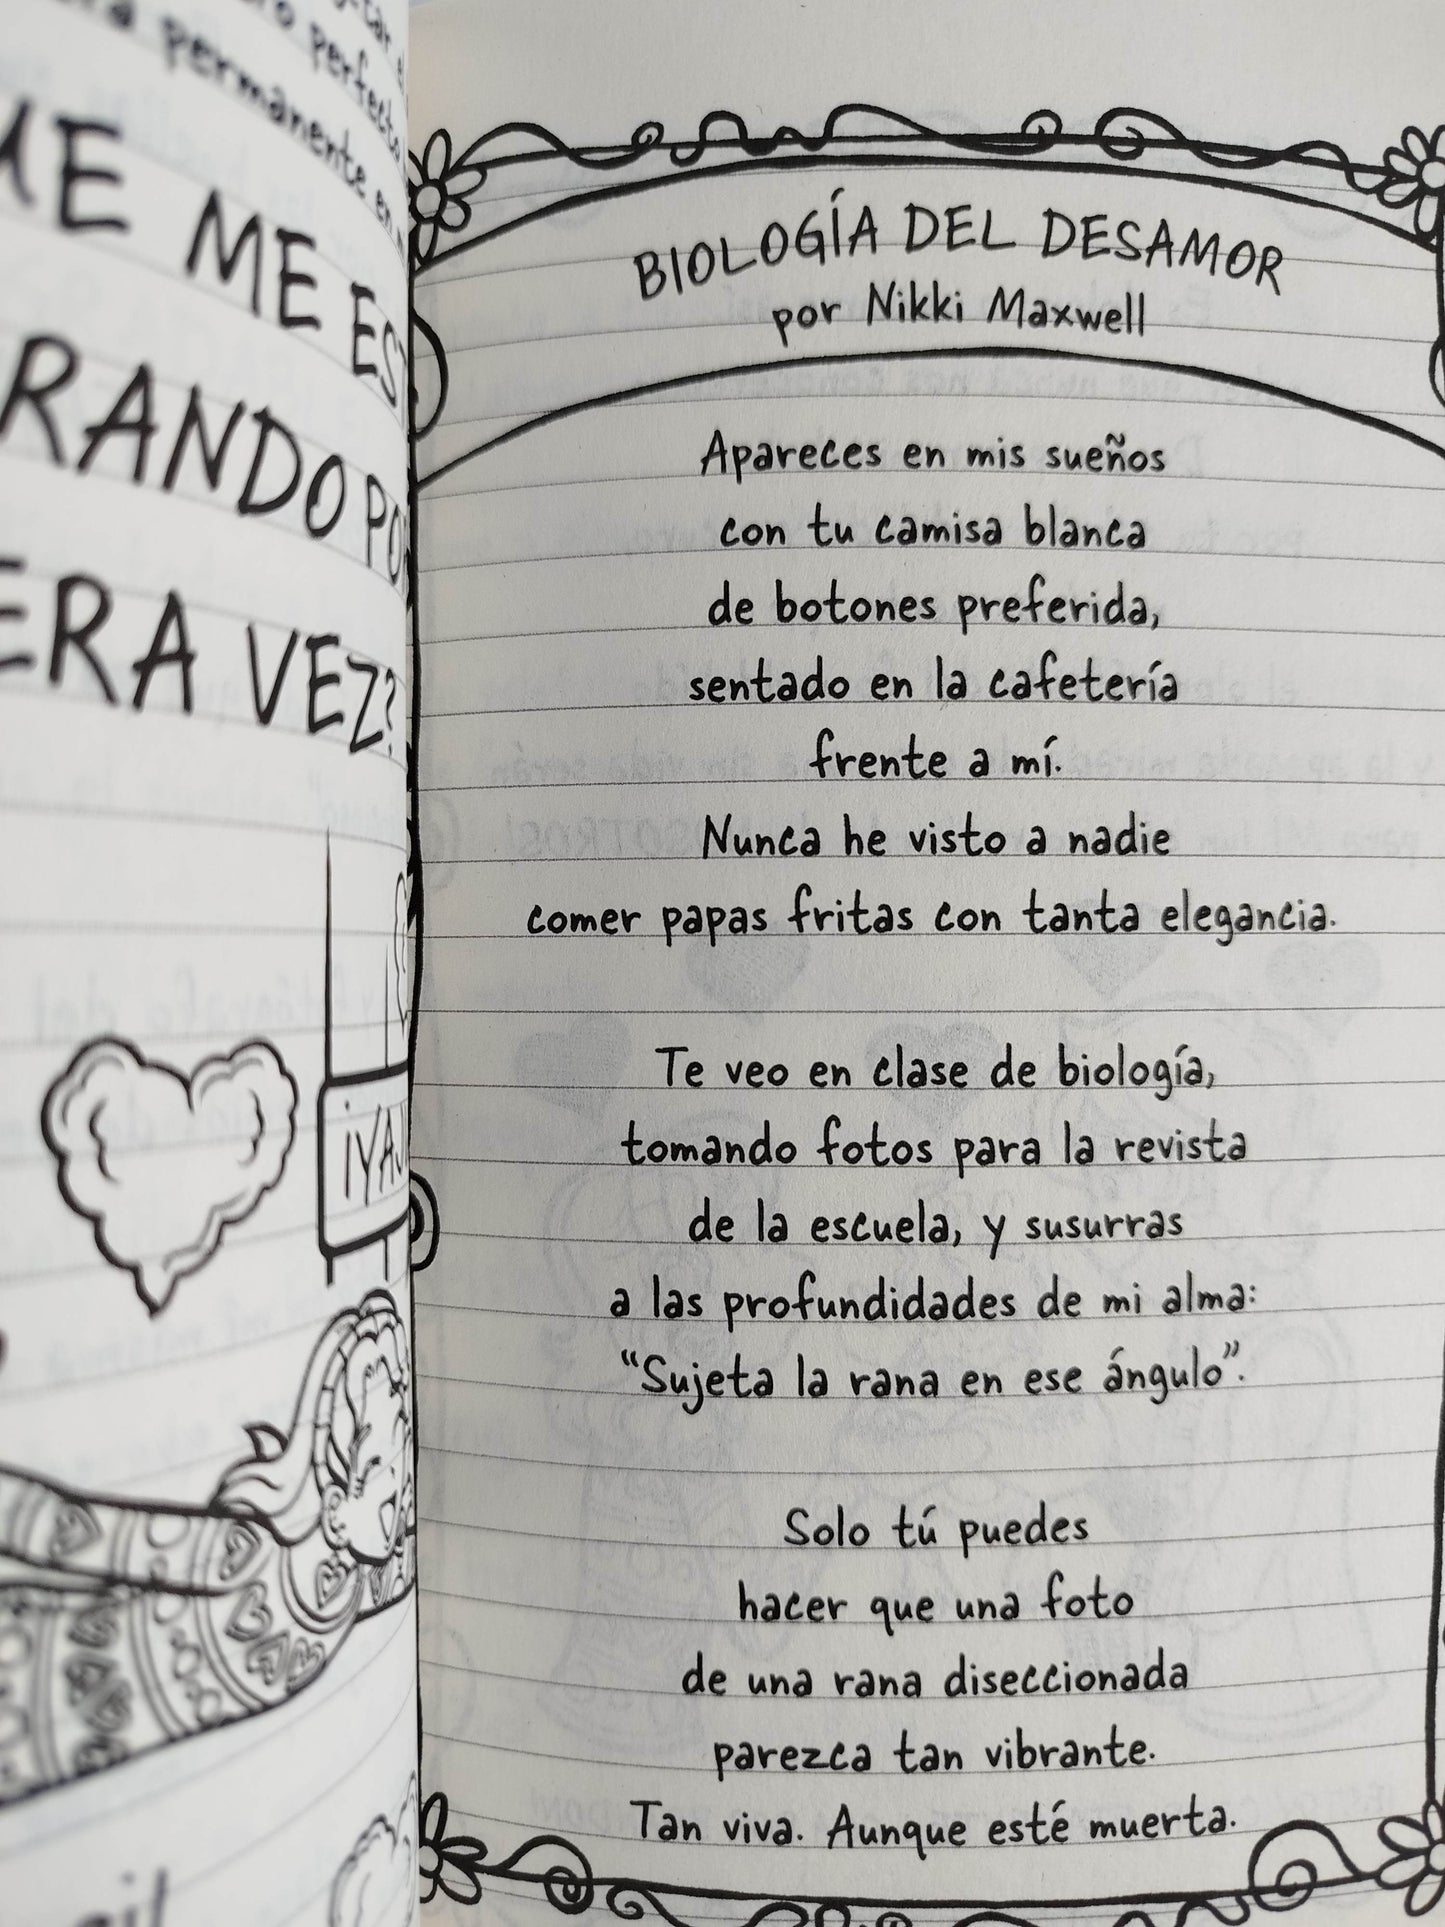 perfecto
permanente en
ME ES
VEZ?
BIOLOGÍA DEL DESAMOR
por Nikki Maxwell
Apareces en mis sueños
con tu camisa blanca
de botones preferida,
sentado en la cafetería
frente a mí.
Nunca he visto a nadie
comer papas fritas con tanta elegancia.
Te veo en clase de biología,
tomando fotos para la revista
de la escuela, y susurras
a las profundidades de mi alma:
“Sujeta la rana en ese ángulo”.
Solo tú puedes
hacer que una foto
de una rana diseccionada
parezca tan vibrante.
Tan viva. Aunque esté muerta.